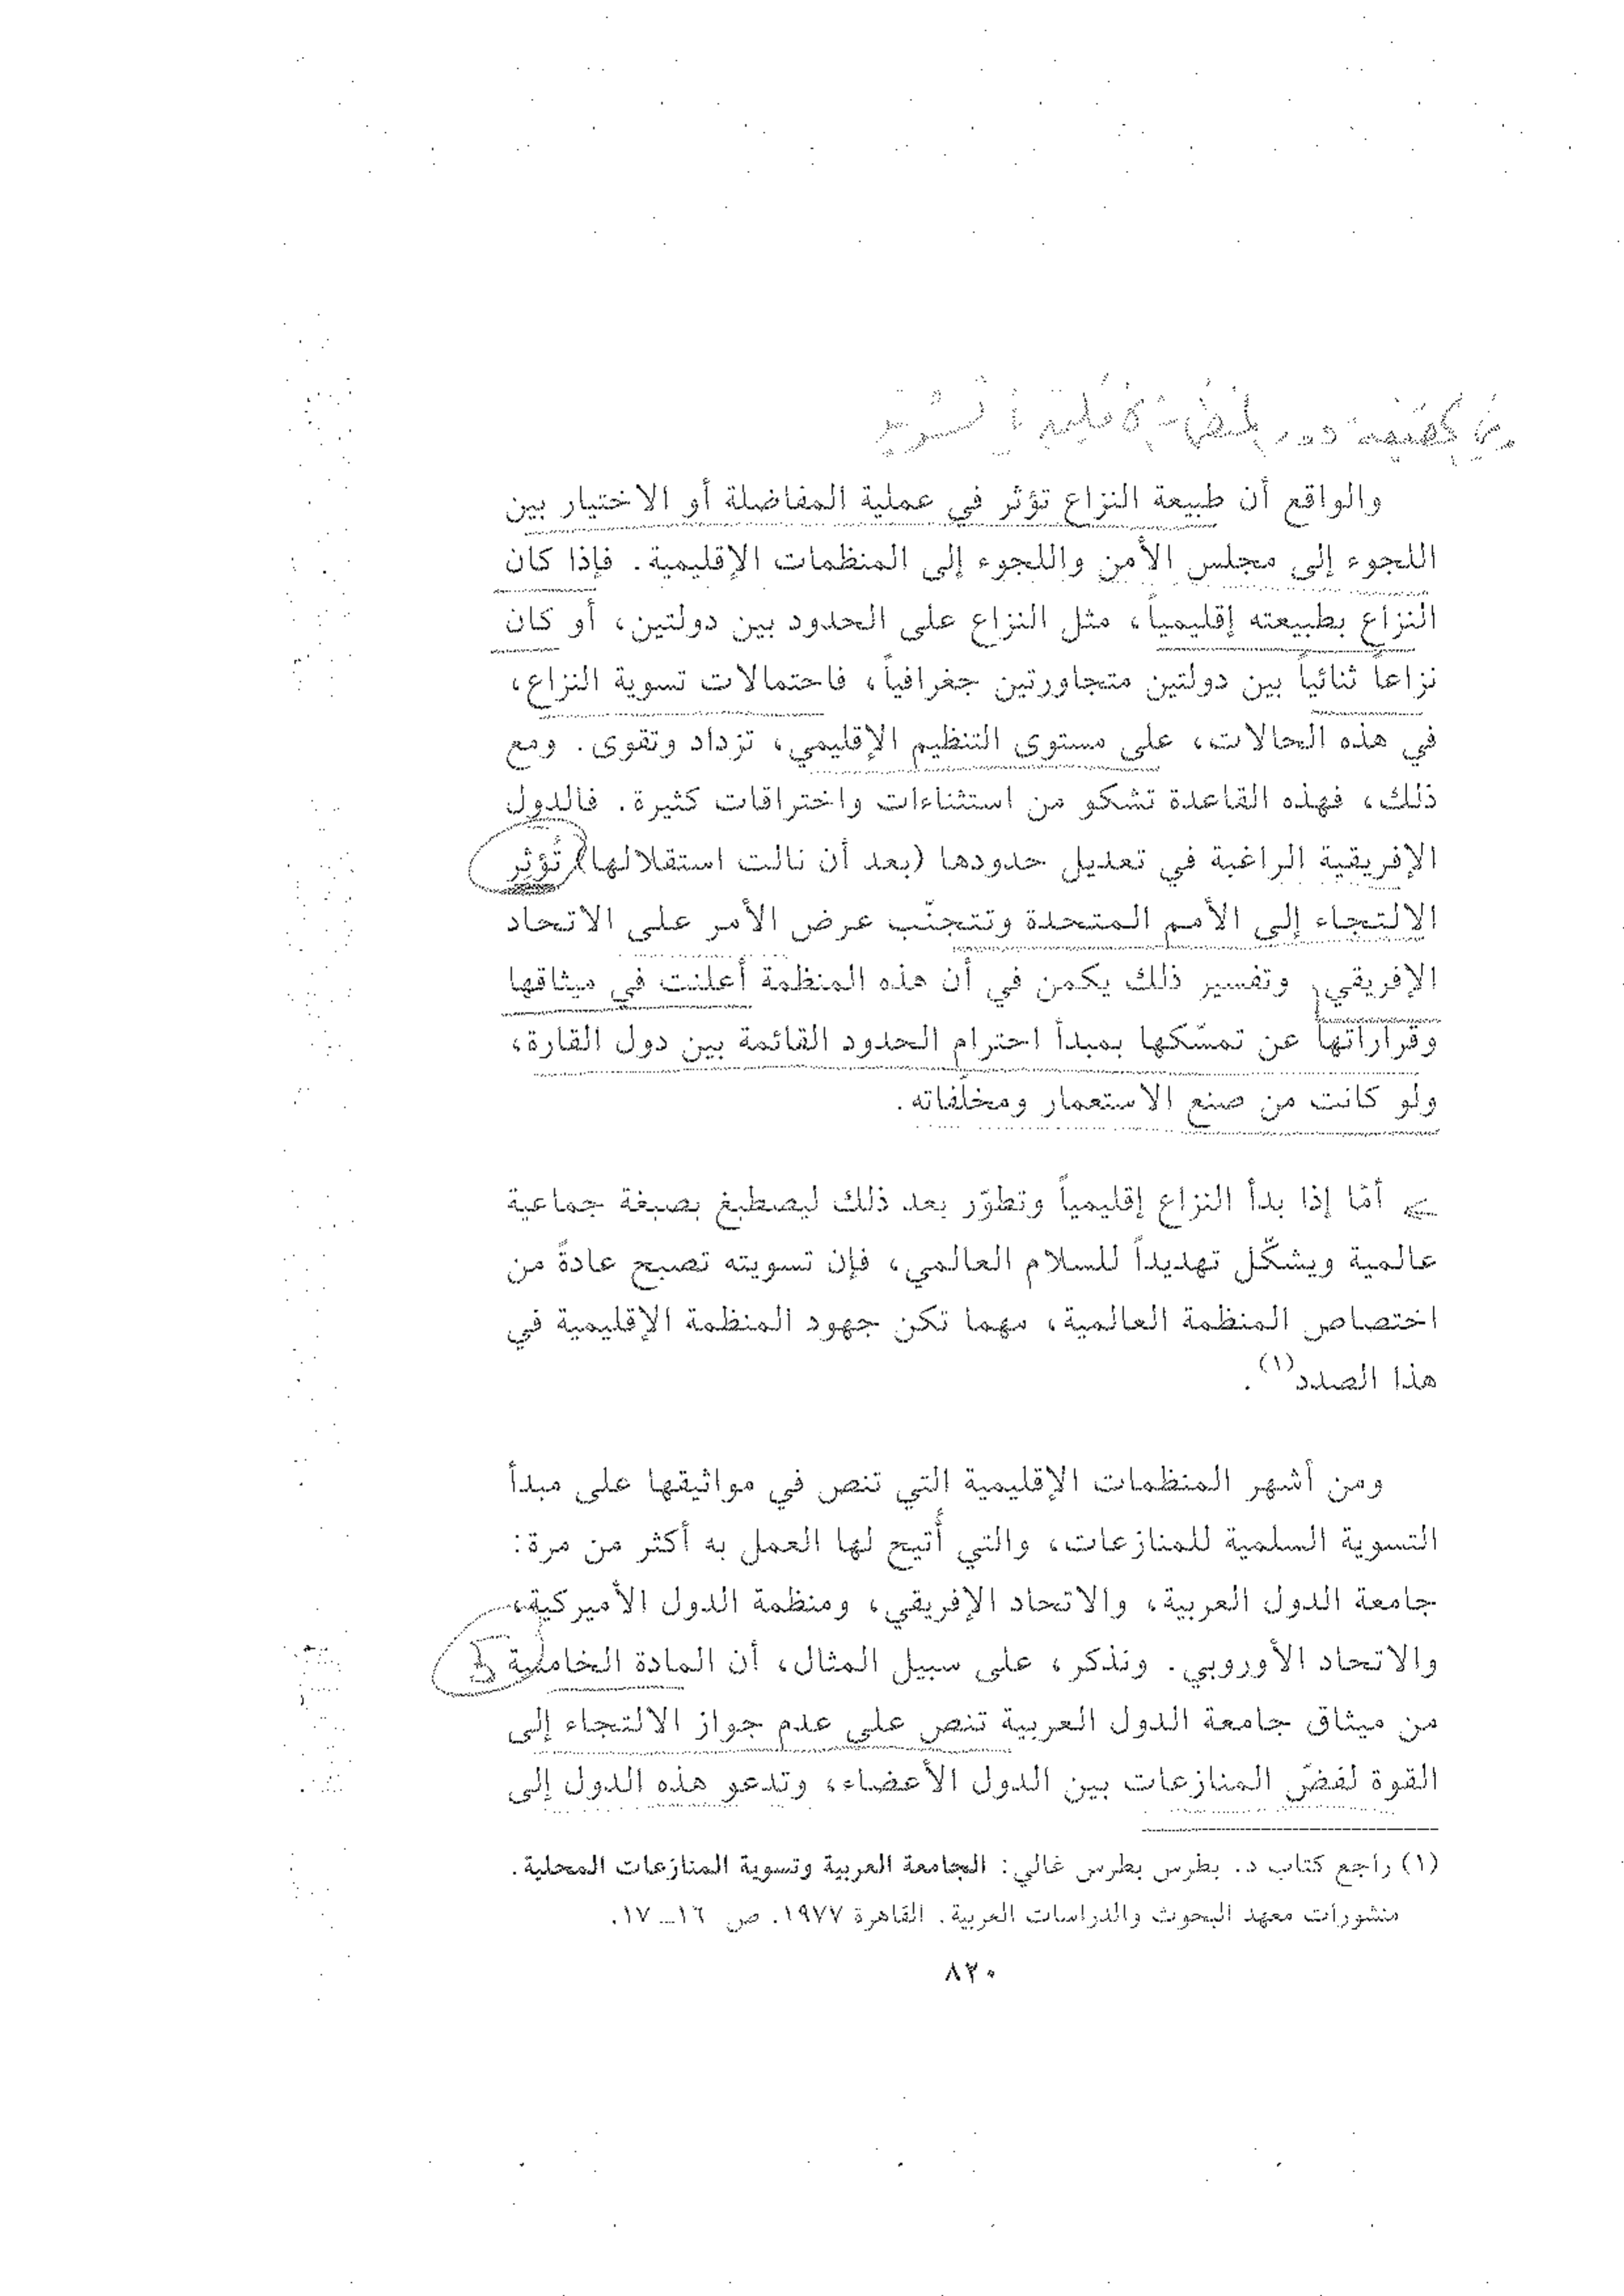 دور المنظمات الإقليمية
والواقع أن طبيعة النزاع تؤثر في عملية المفاضلة أو الاختيار بين
اللجوء إلى مجلس الأمن واللجوء إلى المنظمات الإقليمية. فإذا كان
النزاع بطبيعته إقليمياً، مثل النزاع على الحدود بين دولتين، أو كان
نزاعاً ثنائياً بين دولتين متجاورتين جغرافياً، فاحتمالات تسوية النزاع،
في هذه الحالات، على مستوى التنظيم الإقليمي، تزداد وتقوى. ومع
ذلك، فهذه القاعدة تشكو من استثناءات واختراقات كثيرة. فالدول
الإفريقية الراغبة في تعديل حدودها (بعد أن نالت استقلالها) تُؤثِر
الالتجاء إلى الأمم المتحدة وتتجنّب عرض الأمر على الاتحاد
الإفريقي. وتفسير ذلك يكمن في أن هذه المنظمة أعلنت في ميثاقها
وقراراتها عن تمسّكها بمبدأ احترام الحدود القائمة بين دول القارة،
ولو كانت من صنع الاستعمار ومخلّفاته.
أمّا إذا بدأ النزاع إقليمياً وتطوّر بعد ذلك ليصطبغ بصبغة جماعية
عالمية ويشكّل تهديداً للسلام العالمي، فإن تسويته تصبح عادةً من
اختصاص المنظمة العالمية، مهما تكن جهود المنظمة الإقليمية في
هذا الصدد(١).
ومن أشهر المنظمات الإقليمية التي تنص في مواثيقها على مبدأ
التسوية السلمية للمنازعات، والتي أُتيح لها العمل به أكثر من مرة:
جامعة الدول العربية، والاتحاد الإفريقي، ومنظمة الدول الأميركية،
والاتحاد الأوروبي. ونذكر، على سبيل المثال، أن المادة الخامسة
من ميثاق جامعة الدول العربية تنص على عدم جواز الالتجاء إلى
القوة لفضّ المنازعات بين الدول الأعضاء، وتدعو هذه الدول إلى
(١) راجع كتاب د. بطرس بطرس غالي: الجامعة العربية وتسوية المنازعات المحلية.
منشورات معهد البحوث والدراسات العربية. القاهرة ١٩٧٧. ص ١٦ـ ١٧.
٨٢٠